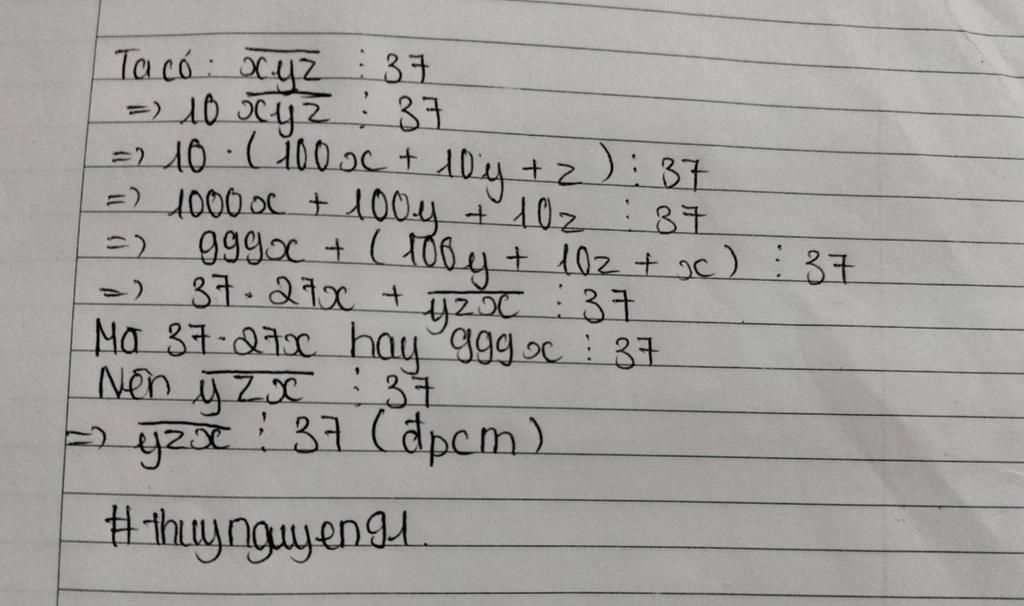 Ta có: x̅y̅z̅ ⋮ 37
=> 10 x̅y̅z̅ ⋮ 37
=> 10 · (100x + 10y + z) ⋮ 37
=> 1000x + 100y + 10z ⋮ 37
=> 999x + (100y + 10z + x) ⋮ 37
=> 37 · 27x + y̅z̅x̅ ⋮ 37
Mà 37 · 27x hay 999x ⋮ 37
Nên y̅z̅x̅ ⋮ 37
=> y̅z̅x̅ ⋮ 37 (đpcm)
#thuynguyen91.